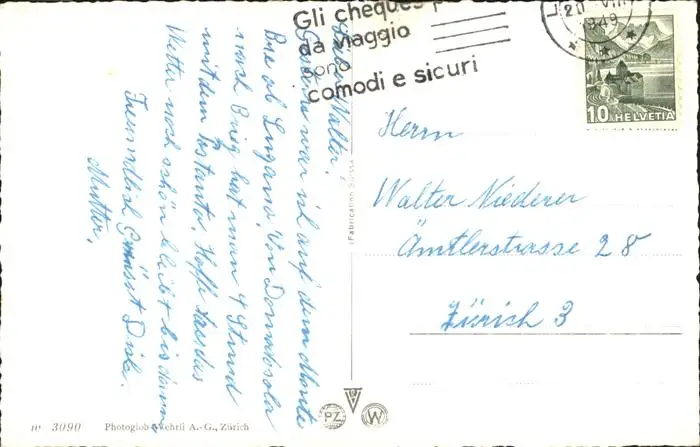 Gli cheques
da viaggio
sono
comodi e sicuri
20. VIII
1949
10 HELVETIA
Lieber Walter!
Gestern war ich auf dem Monte
Bre ob Lugano. Von Domodosola
nach Brig hat man 4 Stund
mit dem Postauto. Hoffe dass das
Wetter noch schön bleibt bis dann
Freundlich Grüsst Dich
Mutter.
Herrn
Walter Niederer
Ämtlerstrasse 28
Zürich 3
Fabrication Suisse
PZ
W
w 3090 Photoglob-Wehrli A.-G., Zürich